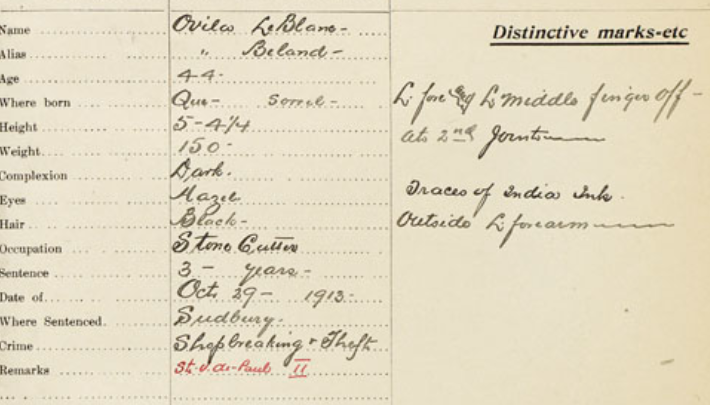 Name Ovila LeBlanc-
Alias " Beland-
Age 44-
Where born Que- Sorrel-
Height 5-4 1/4
Weight 150-
Complexion Dark.
Eyes Hazel
Hair Black-
Occupation Stone Cutter
Sentence 3- years-
Date of Oct. 29- 1913-
Where Sentenced Sudbury-
Crime Shopbreaking & Theft
Remarks St. V. de-Paul II
Distinctive marks-etc
L. fore & L middle finger off-
at 2nd Joints
Traces of India Ink.
Outside L forearm